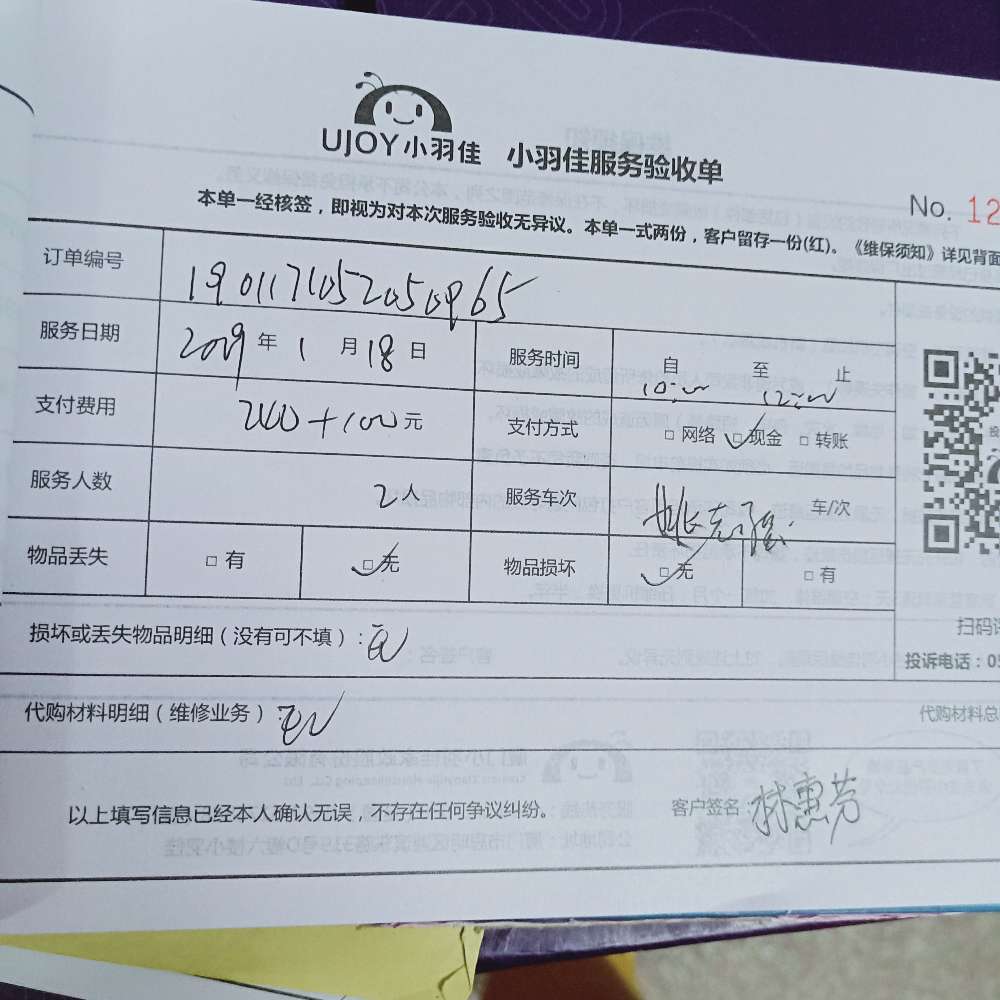 UJOY小羽佳 小羽佳服务验收单
No. 12
本单一经核签，即视为对本次服务验收无异议。本单一式两份，客户留存一份(红)。《维保须知》详见背面
订单编号 190117105205096​5
服务日期 2019年1月18日 服务时间 自10:00至12:00止
支付费用 200+100元 支付方式 □网络 ☑现金 □转账
服务人数 2人 服务车次 姚克强 车/次
物品丢失 □有 ☑无 物品损坏 ☑无 □有
扫码
损坏或丢失物品明细（没有可不填）：无
投诉电话：05
代购材料明细（维修业务）：无
代购材料总
以上填写信息已经本人确认无误，不存在任何争议纠纷。 客户签名：林惠芳